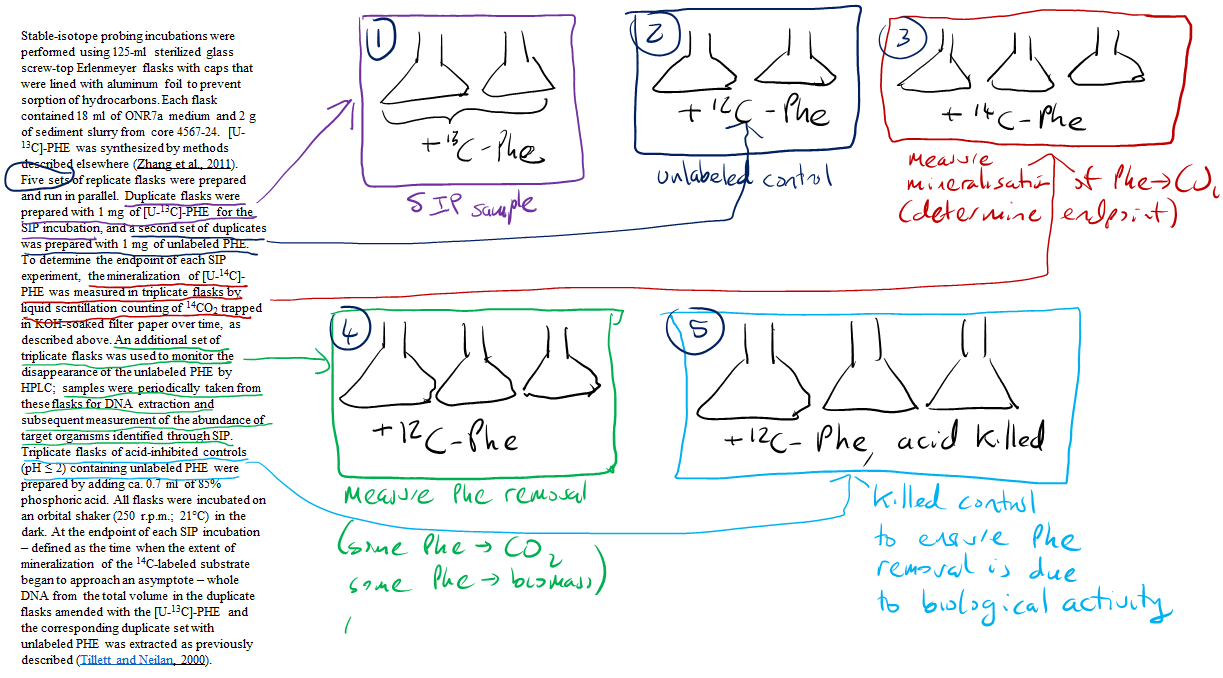 Stable-isotope probing incubations were
performed using 125-ml sterilized glass
screw-top Erlenmeyer flasks with caps that
were lined with aluminum foil to prevent
sorption of hydrocarbons. Each flask
contained 18 ml of ONR7a medium and 2 g
of sediment slurry from core 4567-24. [U-
13C]-PHE was synthesized by methods
described elsewhere (Zhang et al., 2011).
Five sets of replicate flasks were prepared
and run in parallel. Duplicate flasks were
prepared with 1 mg of [U-13C]-PHE for the
SIP incubation, and a second set of duplicates
was prepared with 1 mg of unlabeled PHE.
To determine the endpoint of each SIP
experiment, the mineralization of [U-14C]-
PHE was measured in triplicate flasks by
liquid scintillation counting of 14CO2 trapped
in KOH-soaked filter paper over time, as
described above. An additional set of
triplicate flasks was used to monitor the
disappearance of the unlabeled PHE by
HPLC; samples were periodically taken from
these flasks for DNA extraction and
subsequent measurement of the abundance of
target organisms identified through SIP.
Triplicate flasks of acid-inhibited controls
(pH ≤ 2) containing unlabeled PHE were
prepared by adding ca. 0.7 ml of 85%
phosphoric acid. All flasks were incubated on
an orbital shaker (250 r.p.m.; 21°C) in the
dark. At the endpoint of each SIP incubation
– defined as the time when the extent of
mineralization of the 14C-labeled substrate
began to approach an asymptote – whole
DNA from the total volume in the duplicate
flasks amended with the [U-13C]-PHE and
the corresponding duplicate set with
unlabeled PHE was extracted as previously
described (Tillett and Neilan, 2000).
1
+ 13C-Phe
SIP sample
2
+ 12C-Phe
unlabeled control
3
+ 14C-Phe
Measure
mineralisation of Phe → CO2
(determine endpoint)
4
+ 12C-Phe
Measure Phe removal
(some Phe → CO2
some Phe → biomass)
5
+ 12C- Phe, acid killed
Killed control
to ensure Phe
removal is due
to biological activity